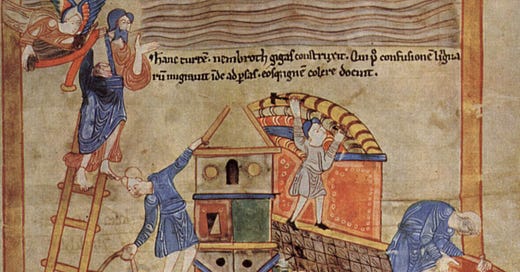 Hanc turrē. nembroth gigas construxit. Qui p̄ confusionē lingua
rū migrauit īde ad p̲sas. eosq; ignē colere docuit.